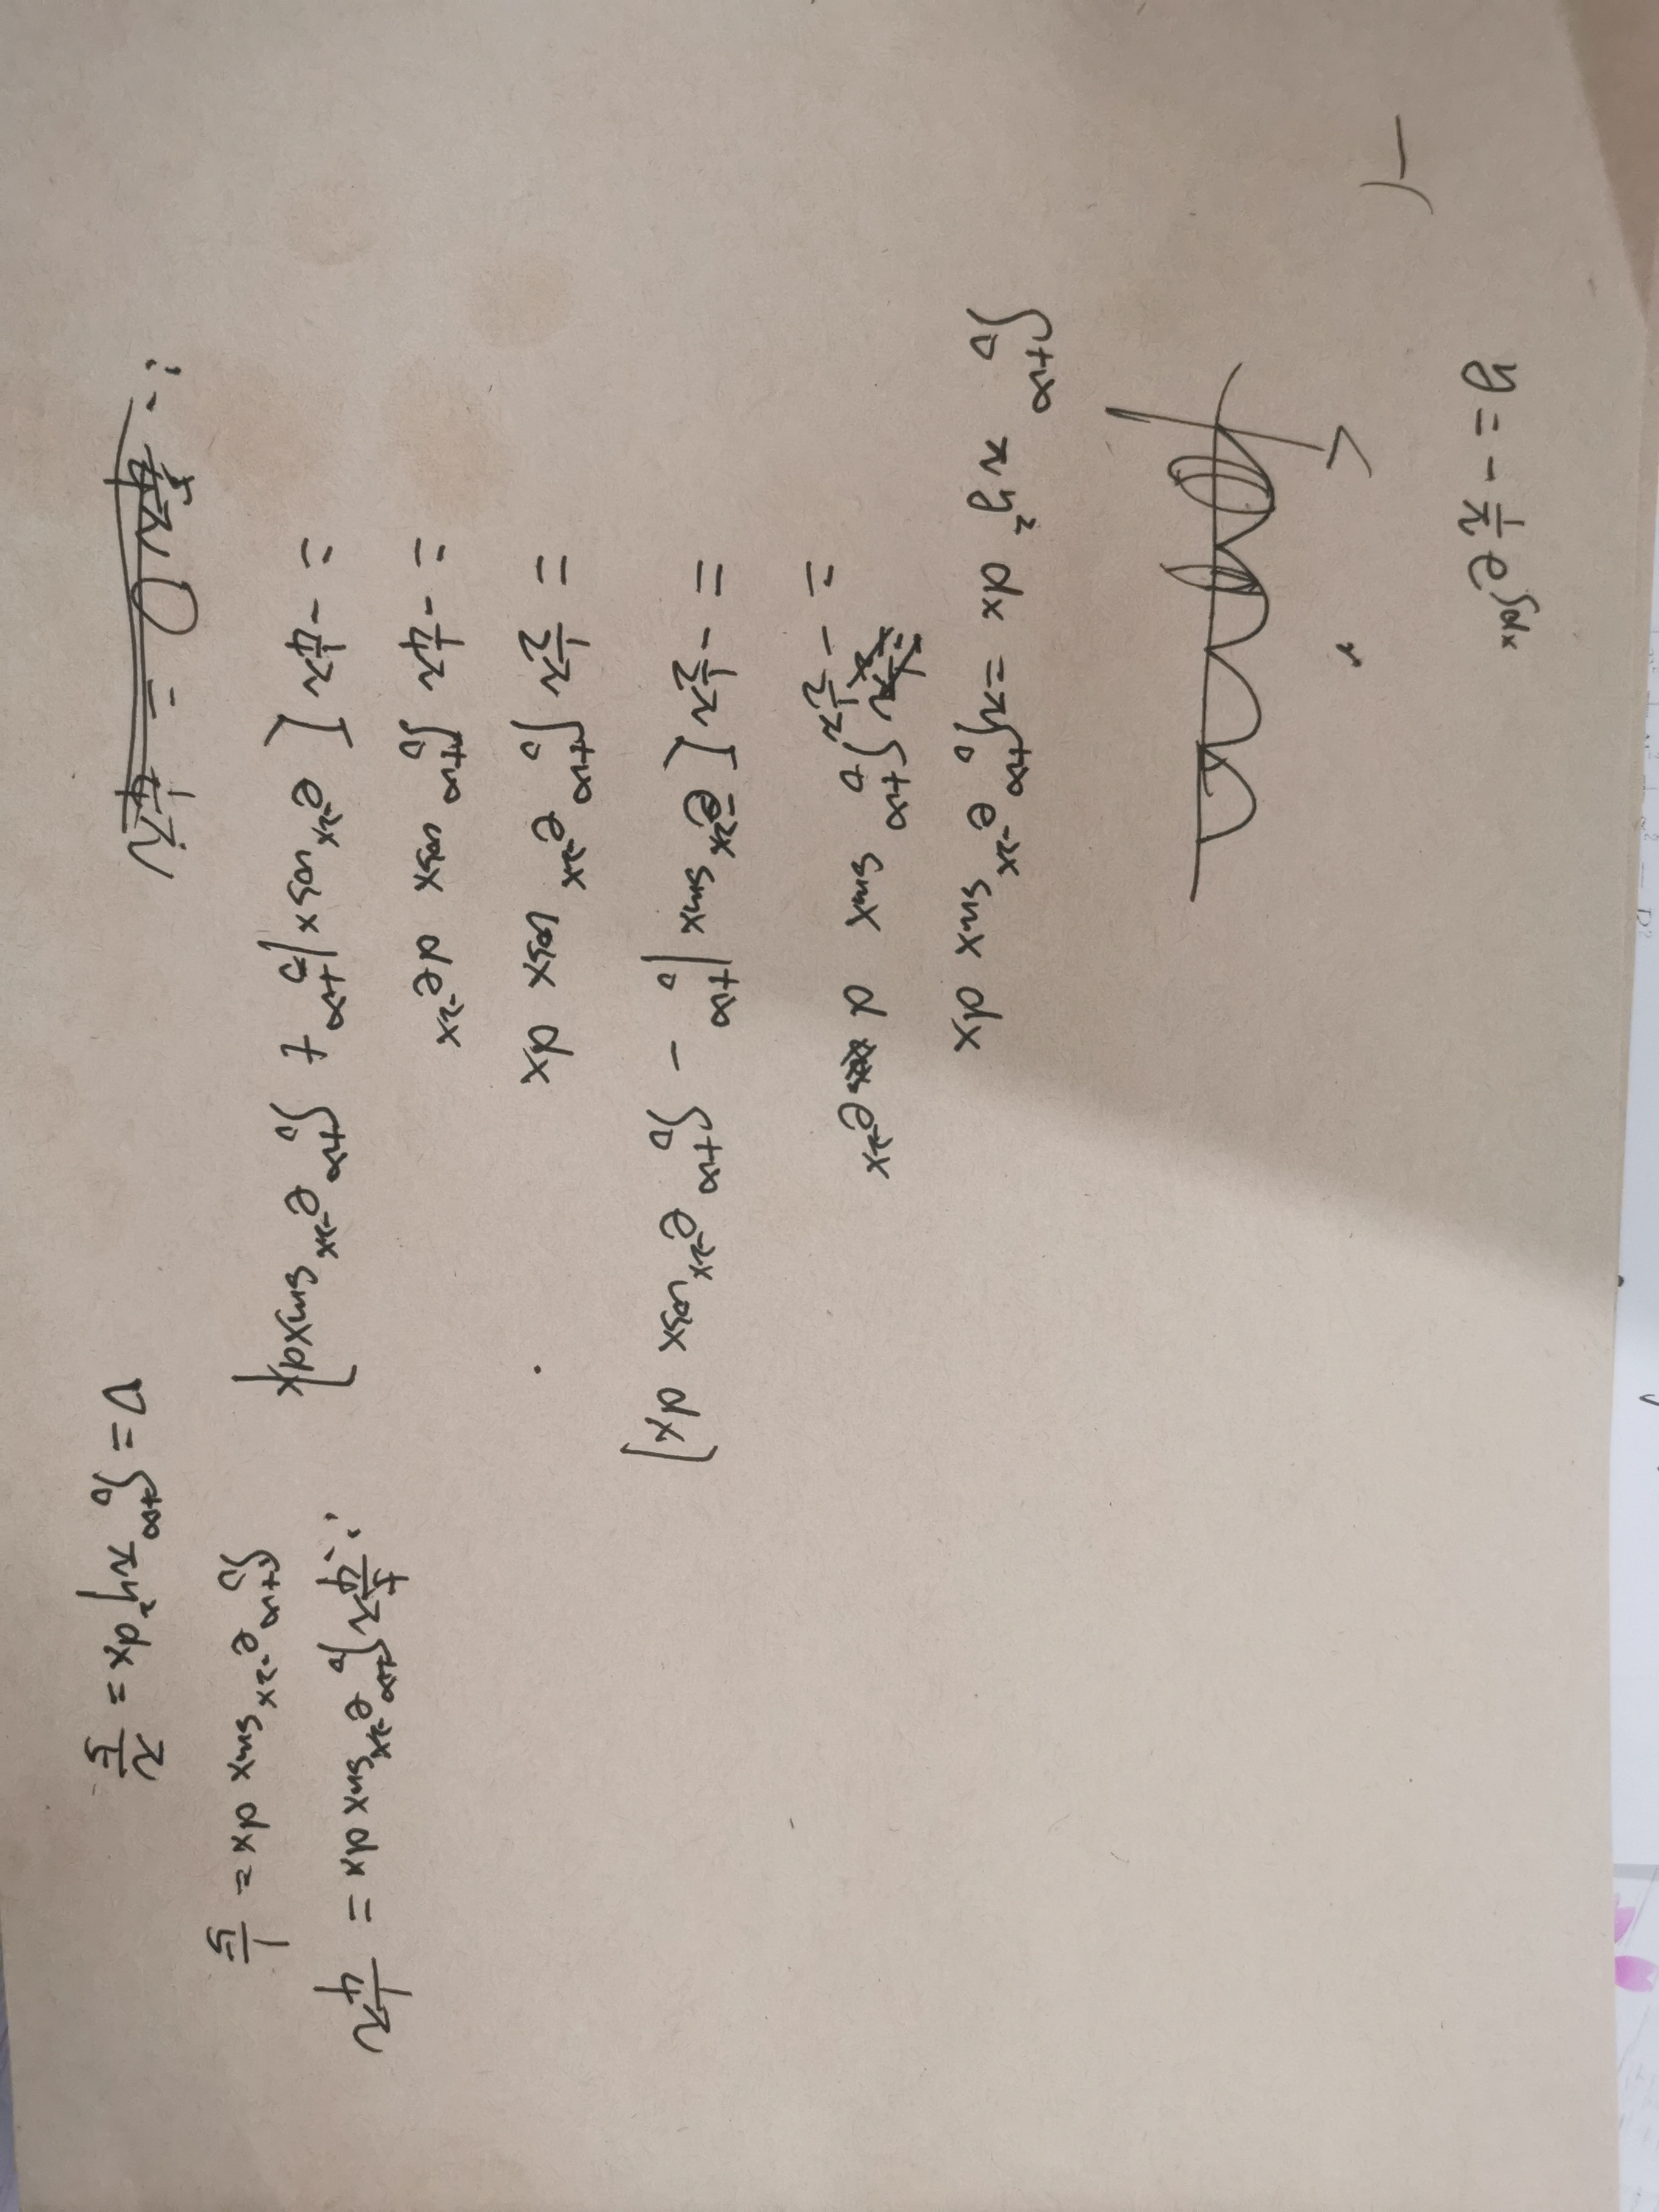 y = - 1/π e^{cosx}
∫_0^{+∞} πy² dx = π∫_0^{+∞} e^{-2x} sinx dx
= - 1/2 π∫_0^{+∞} sinx d e^{-2x}
= - 1/2 π [ e^{-2x} sinx |_0^{+∞} - ∫_0^{+∞} e^{-2x} cosx dx ]
= 1/2 π ∫_0^{+∞} e^{-2x} cosx dx
= - 1/4 π ∫_0^{+∞} cosx de^{-2x}
= - 1/4 π [ e^{-2x} cosx |_0^{+∞} + ∫_0^{+∞} e^{-2x} sinx dx ]
∴ 5/4 π∫_0^{+∞} e^{-2x} sinx dx = 1/4 π
∫_0^{+∞} e^{-2x} sinx dx = 1/5
V = ∫_0^{+∞} πy² dx = π/5